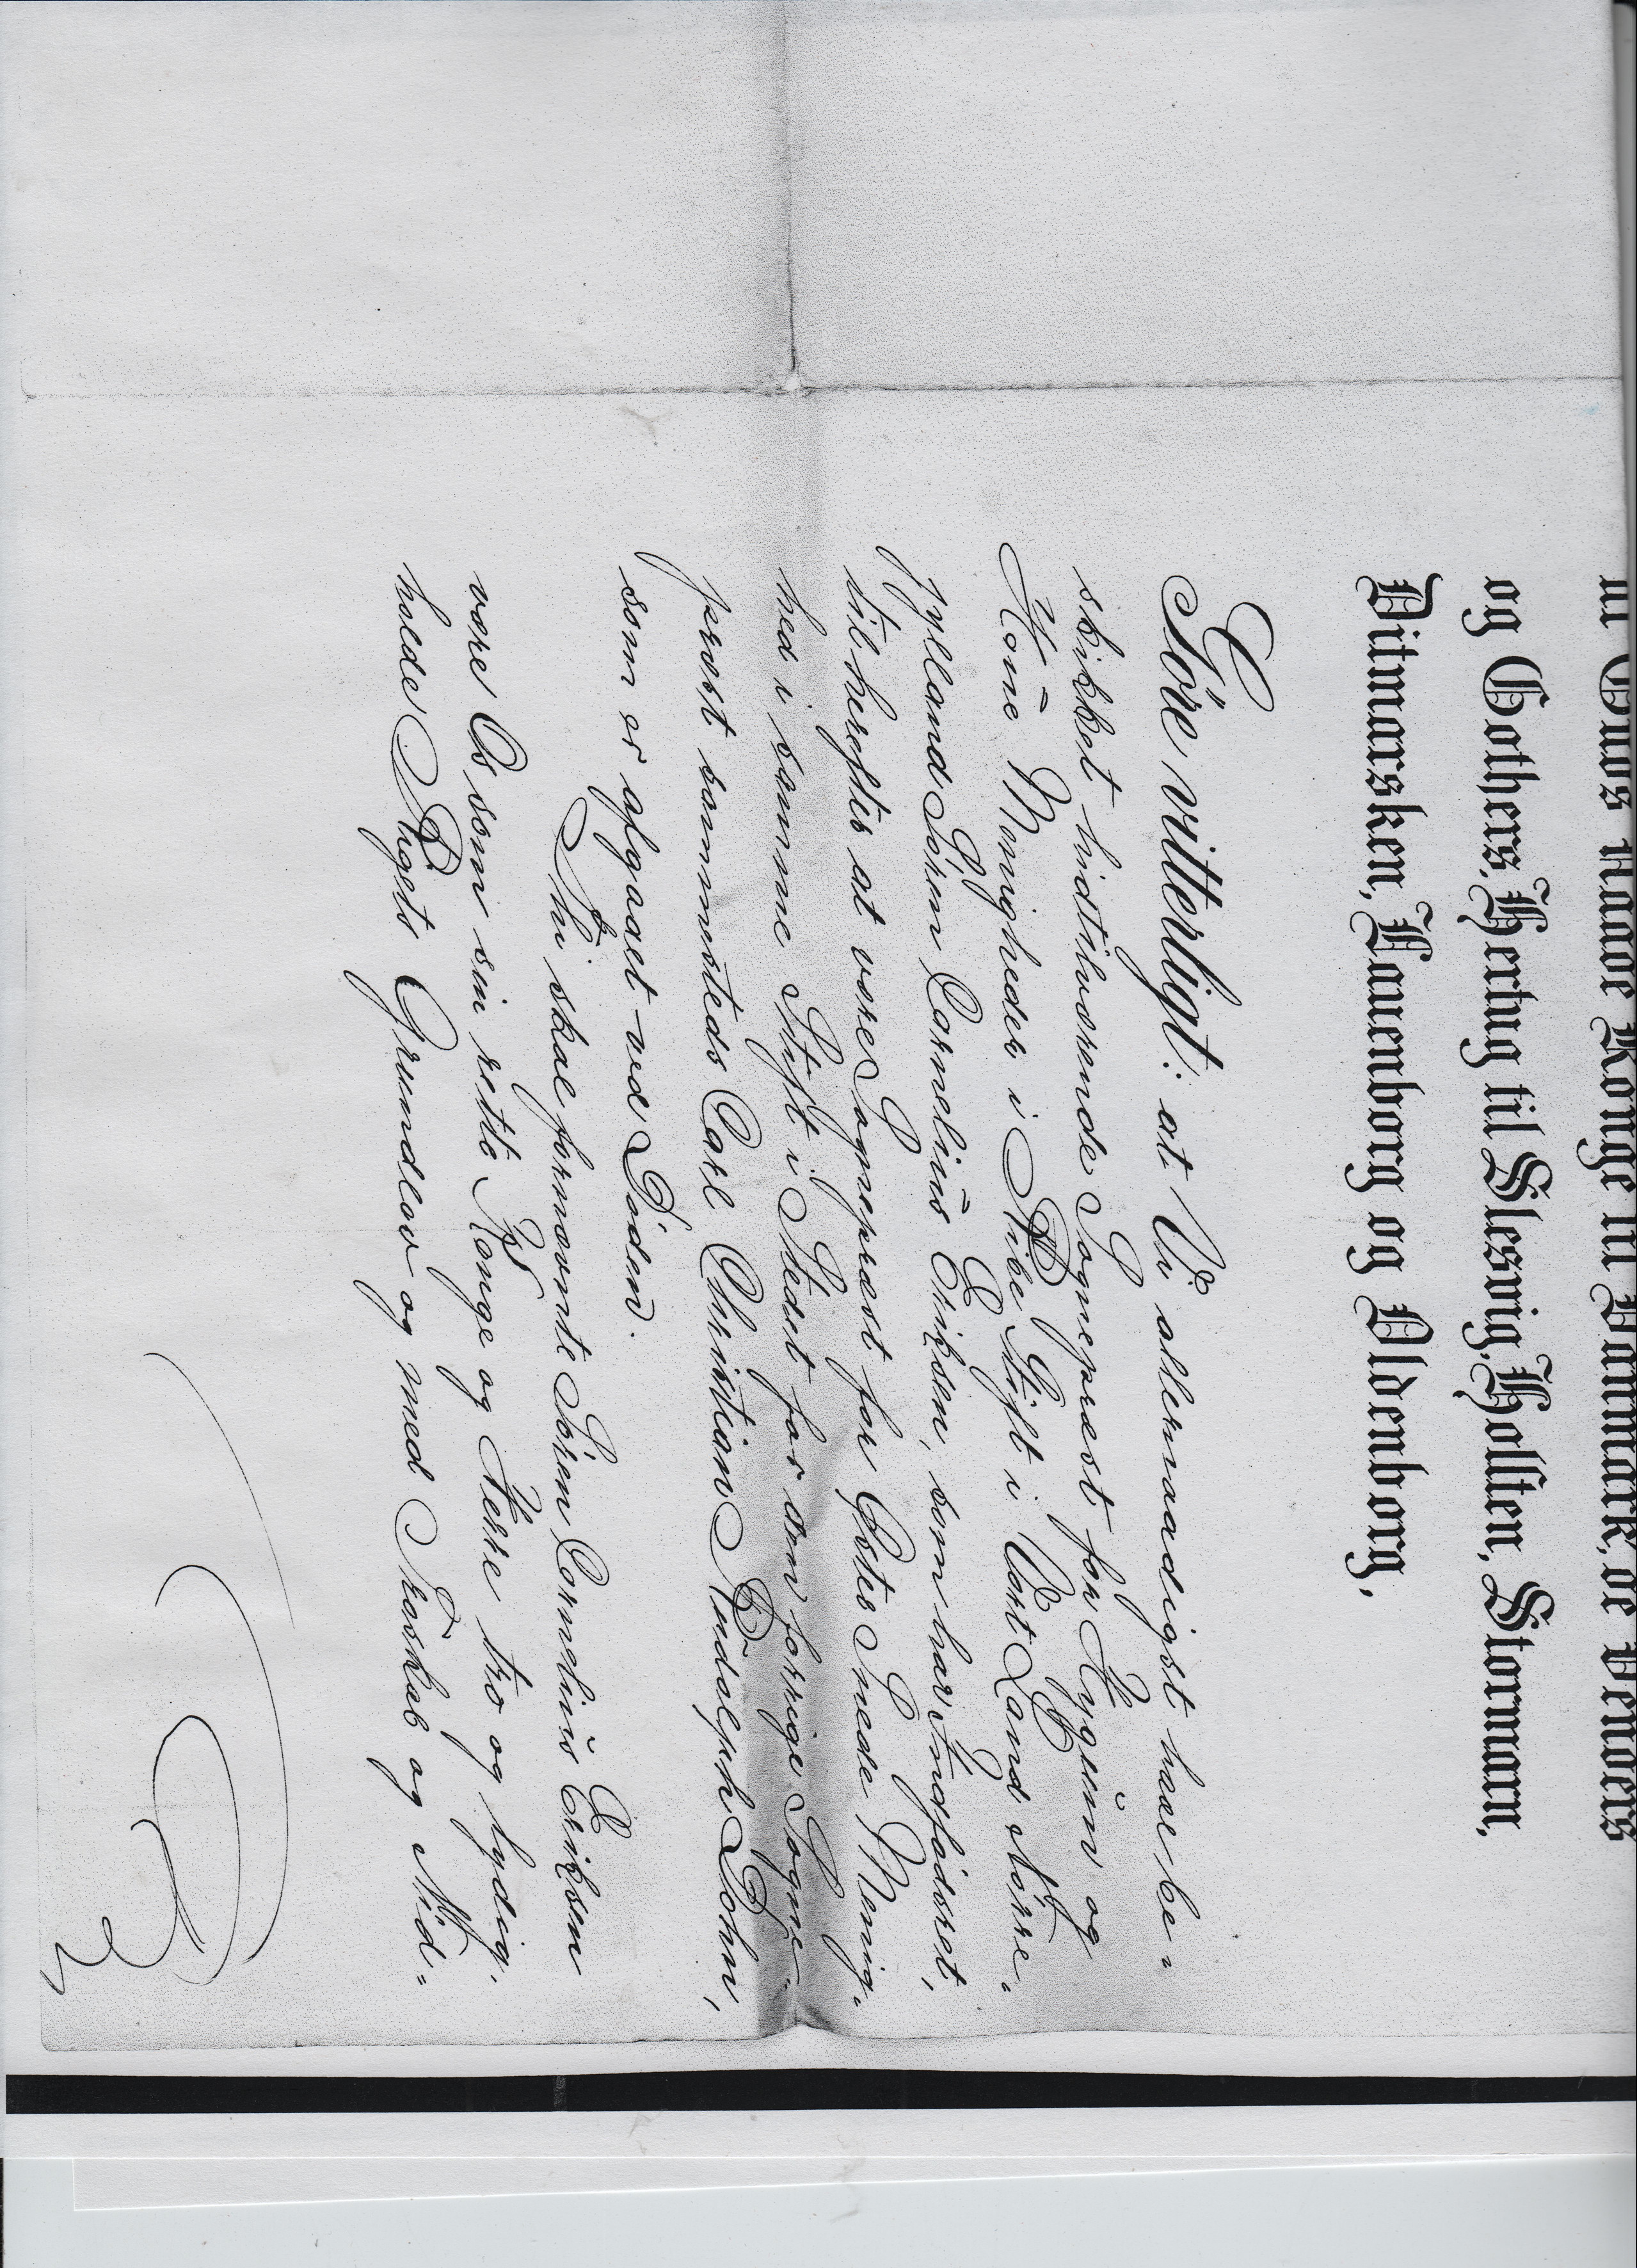 af Guds Naade Konge til Danmark, de Venders
og Gothers, Hertug til Slesvig, Holsten, Stormarn,
Ditmarsken, Lauenborg og Oldenborg,
Göre vitterligt: at Vi allernaadigst have be-
skikket hidtilværende Sognepræst for Rygŭm og
Kone Menigheder i Ribe Stift i Vort Land Nörre-
jylland Sören Corneliŭs Eriksen, som har Indfödsret,
til herefter at være Sognepræst for Öster Snede Menig-
hed i samme Stift i Stedet for den forrige Sogne-
præst sammesteds Carl Christian Rudolph Bohn,
som er afgaaet ved Döden.
Thi skal fornævnte Sören Corneliŭs Eriksen
være Os som sin rette Konge og Herre tro og lydig,
holde Rigets Grundlov og med Troskab og Nid-